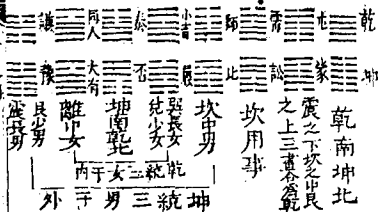 乾 屯 需 師 小畜 泰 同人 謙
坤 蒙 訟 比 履 否 大有 豫
乾南坤北
震之下坎之中艮
之上三畫合為乾
坎用事
坎中男
巽長女
兌少女
坤南乾北
離中女
艮少男
震長男
乾統三女于内
坤統三男于外